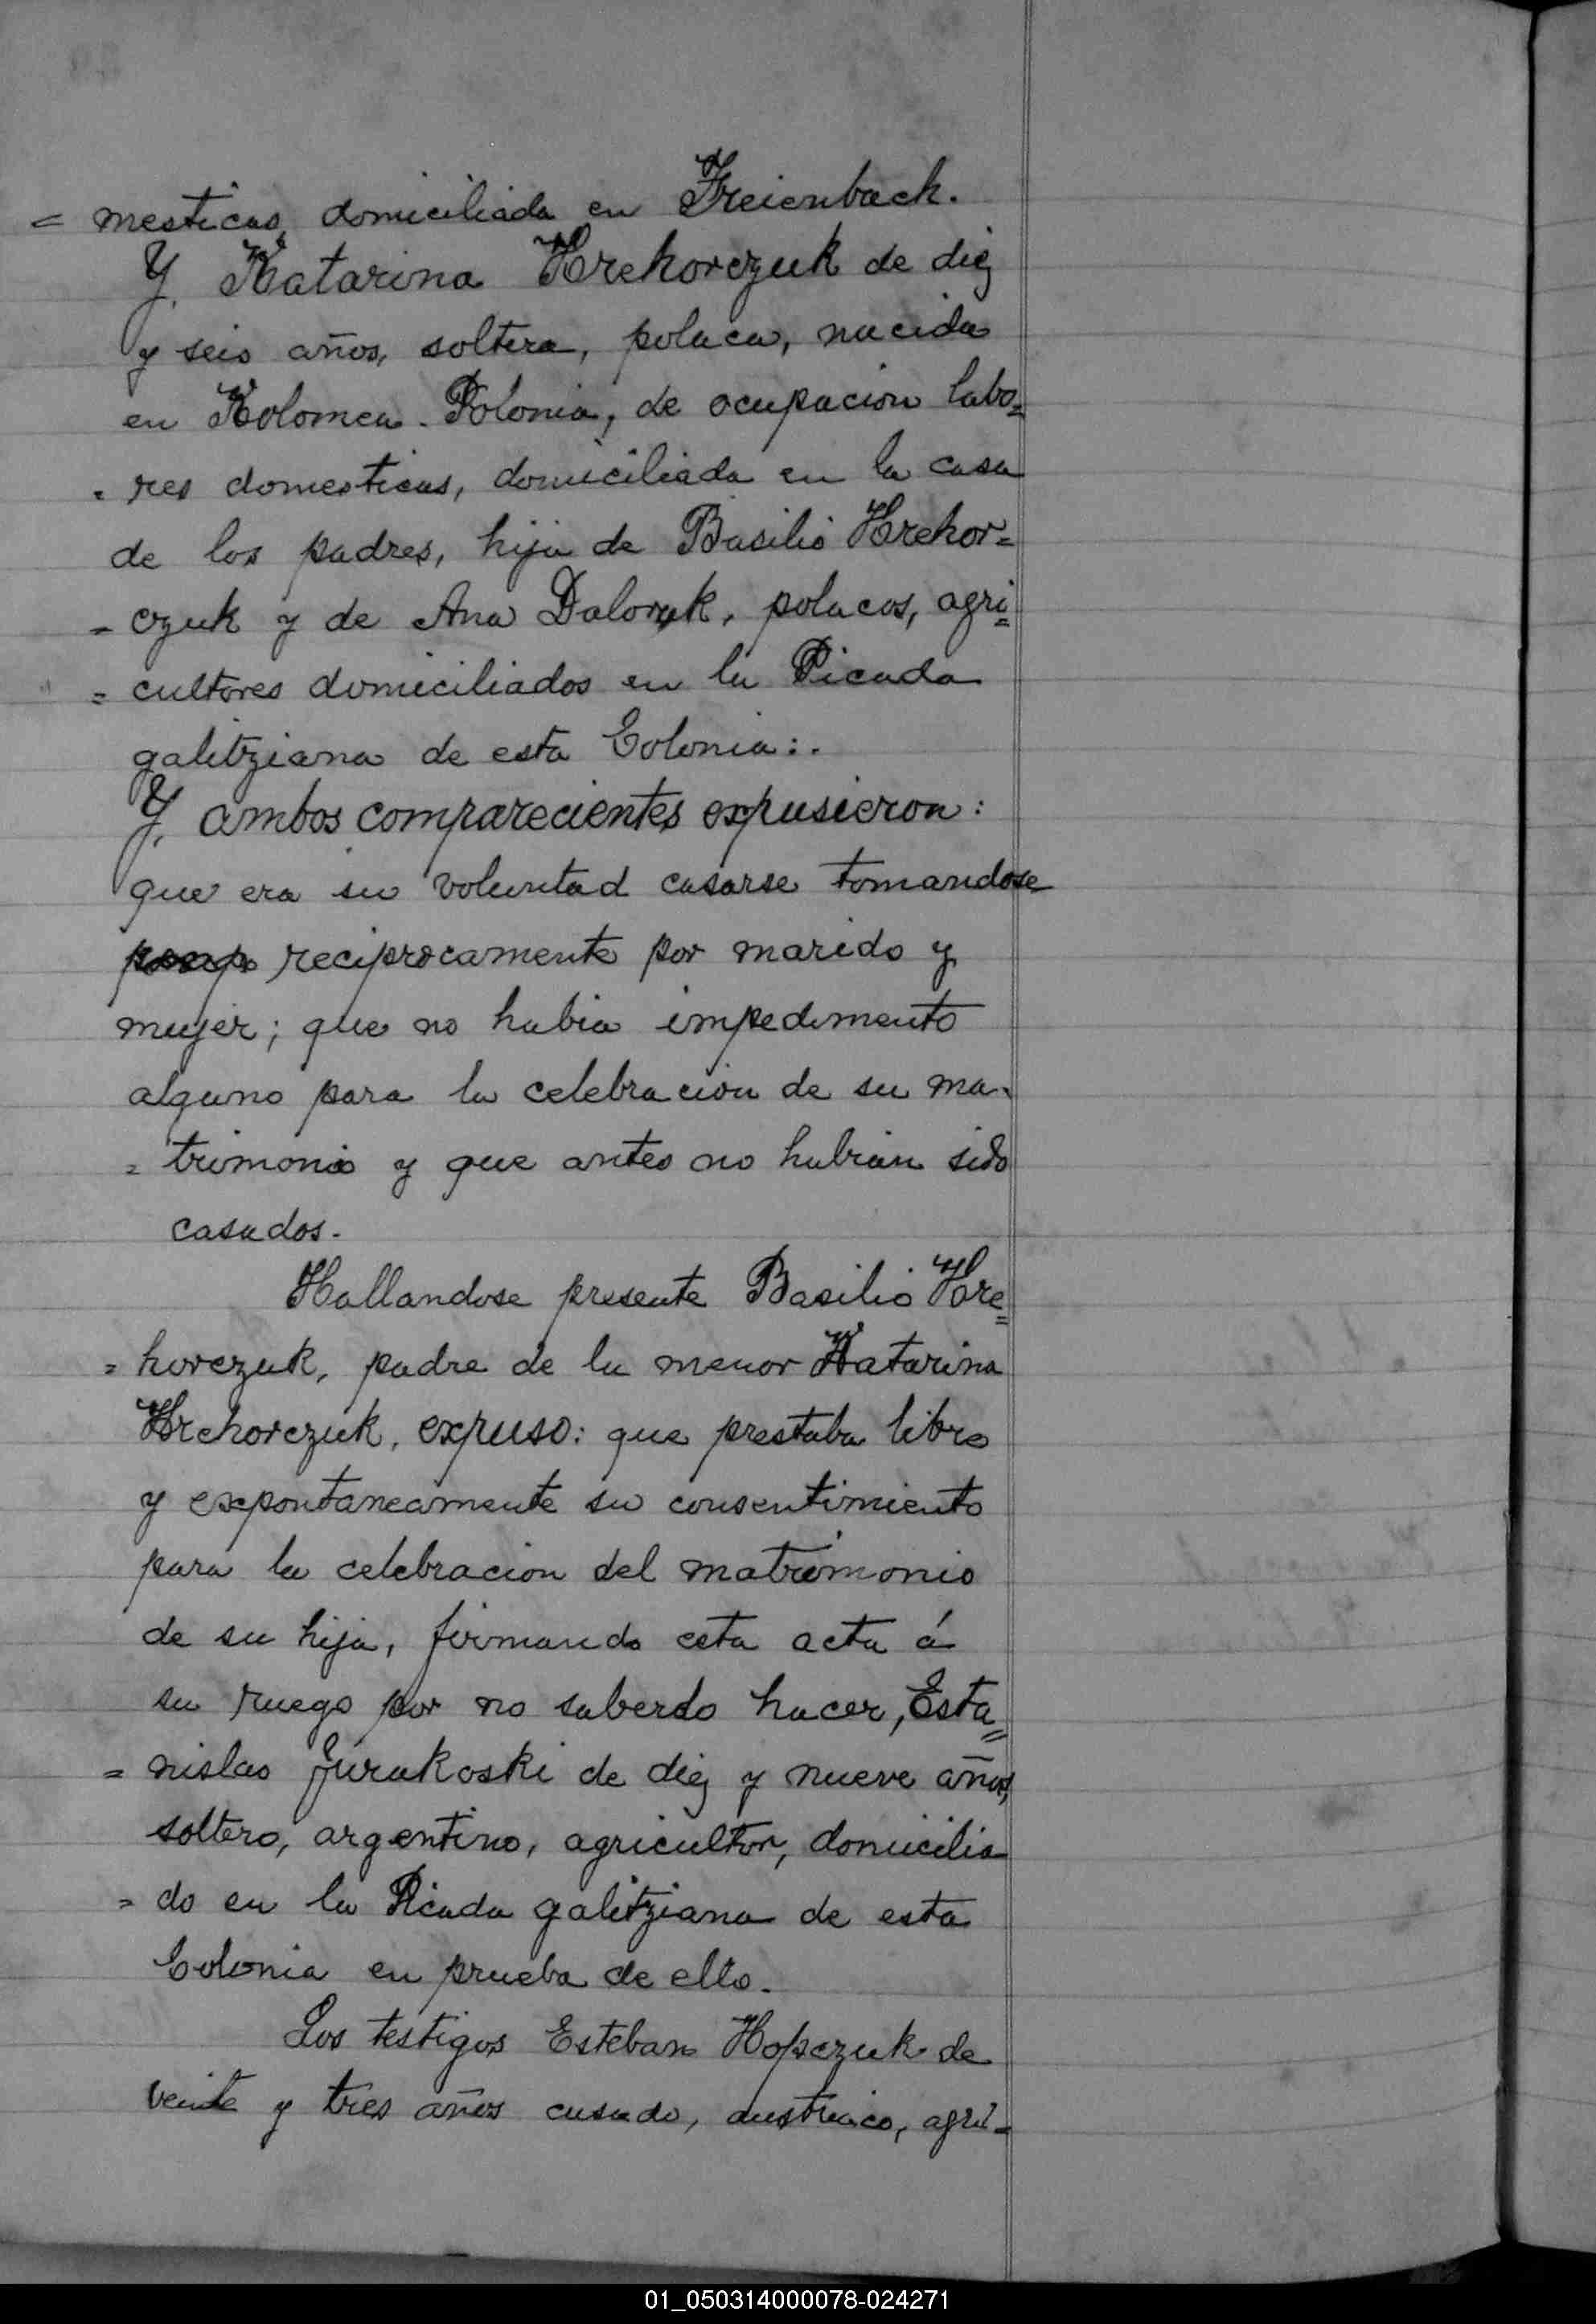 = mesticas, domiciliada en Freienback.
Y, Katarina Hrekorczuk de diez
y seis años, soltera, polaca, nacida
en Kolomea. Polonia, de ocupacion labo=
= res domesticas, domiciliada en la casa
de los padres, hija de Basilio Hrekor=
= czuk y de Ana Daloruk, polacos, agri=
= cultores domiciliados en la Picada
galitziana de esta Colonia:.
Y, ambos comparecientes expusieron:
que era su voluntad casarse tomandose
reciprocamente por marido y
mujer; que no habia impedimento
alguno para la celebracion de su ma-
= trimonio y que antes no habian sido
casados.-
Hallandose presente Basilio Hre=
= horczuk, padre de la menor Katarina
Hrehorczuk, expuso: que prestaba libre
y expontaneamente su consentimiento
para la celebracion del matrimonio
de su hija, firmando esta acta á
su ruego por no saberlo hacer, Esta=
= nislao Jurakoski de diez y nueve años,
soltero, argentino, agricultor, domicilia
= do en la Picada galitziana de esta
Colonia en prueba de ello.
Los testigos Esteban Hopczuk de
veinte y tres años casado, austriaco, agri-
01_050314000078-024271